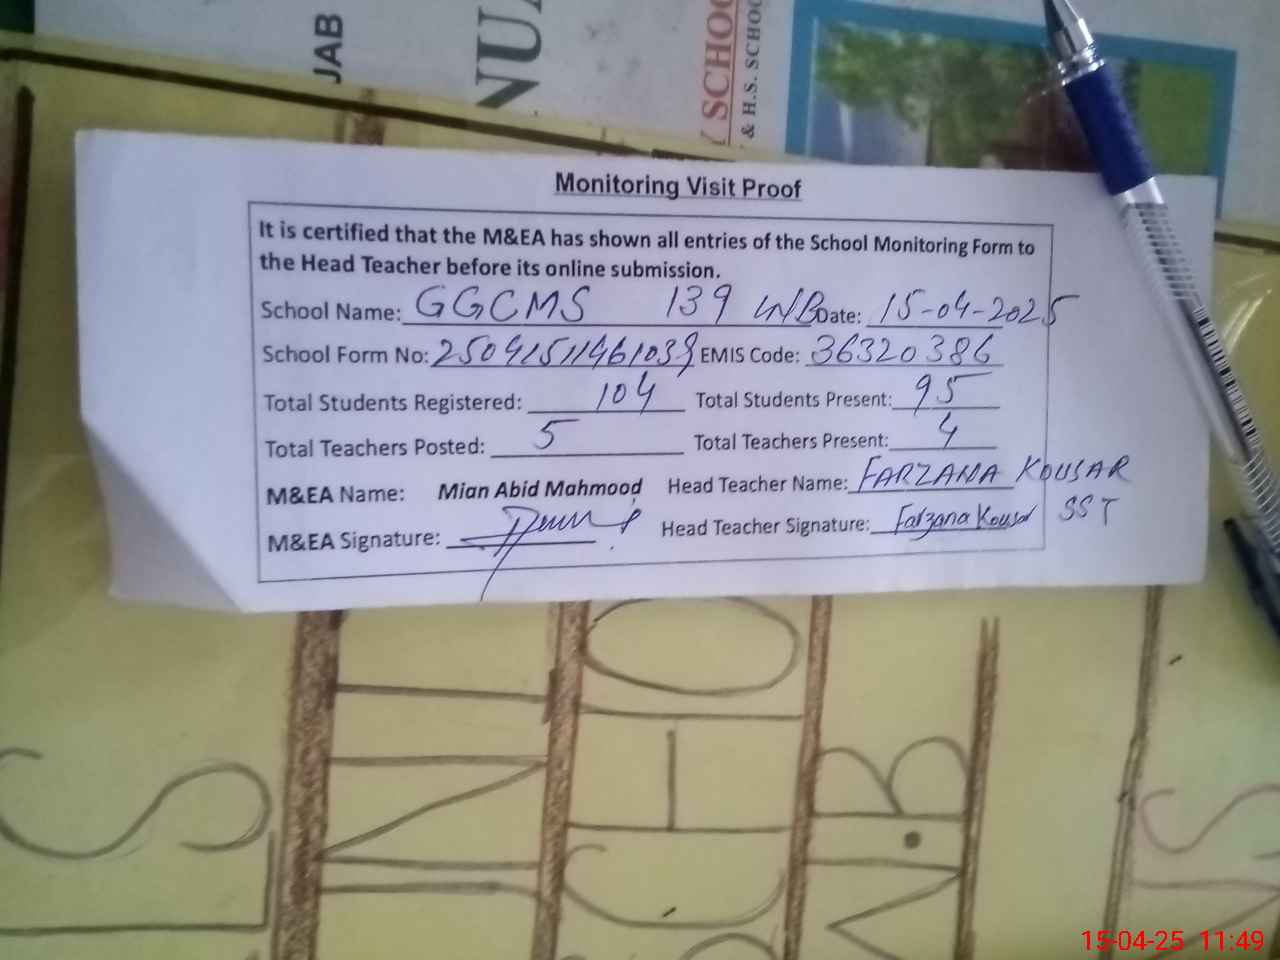 JAB
NUA
Y SCHOO
& H.S. SCHOO
Monitoring Visit Proof
It is certified that the M&EA has shown all entries of the School Monitoring Form to
the Head Teacher before its online submission.
School Name: GGCMS 139 W/B Date: 15-04-2025
School Form No: EMIS Code: 36320386
Total Students Registered: 104 Total Students Present: 95
Total Teachers Posted: 5 Total Teachers Present: 4
M&EA Name: Mian Abid Mahmood Head Teacher Name: FARZANA KOUSAR
M&EA Signature: Head Teacher Signature: Farzana Kousar SST
15-04-25 11:49